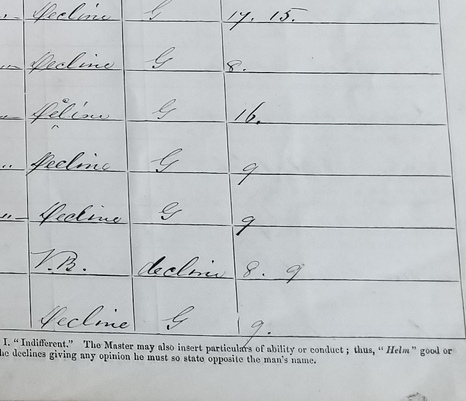 " decline G 17. 15.
" decline G 8.
" decline G 16.
" decline G 9
" decline G 9
V.B. decline 8. 9
decline G 9.
I. "Indifferent." The Master may also insert particulars of ability or conduct; thus, "Helm" good or
he declines giving any opinion he must so state opposite the man's name.